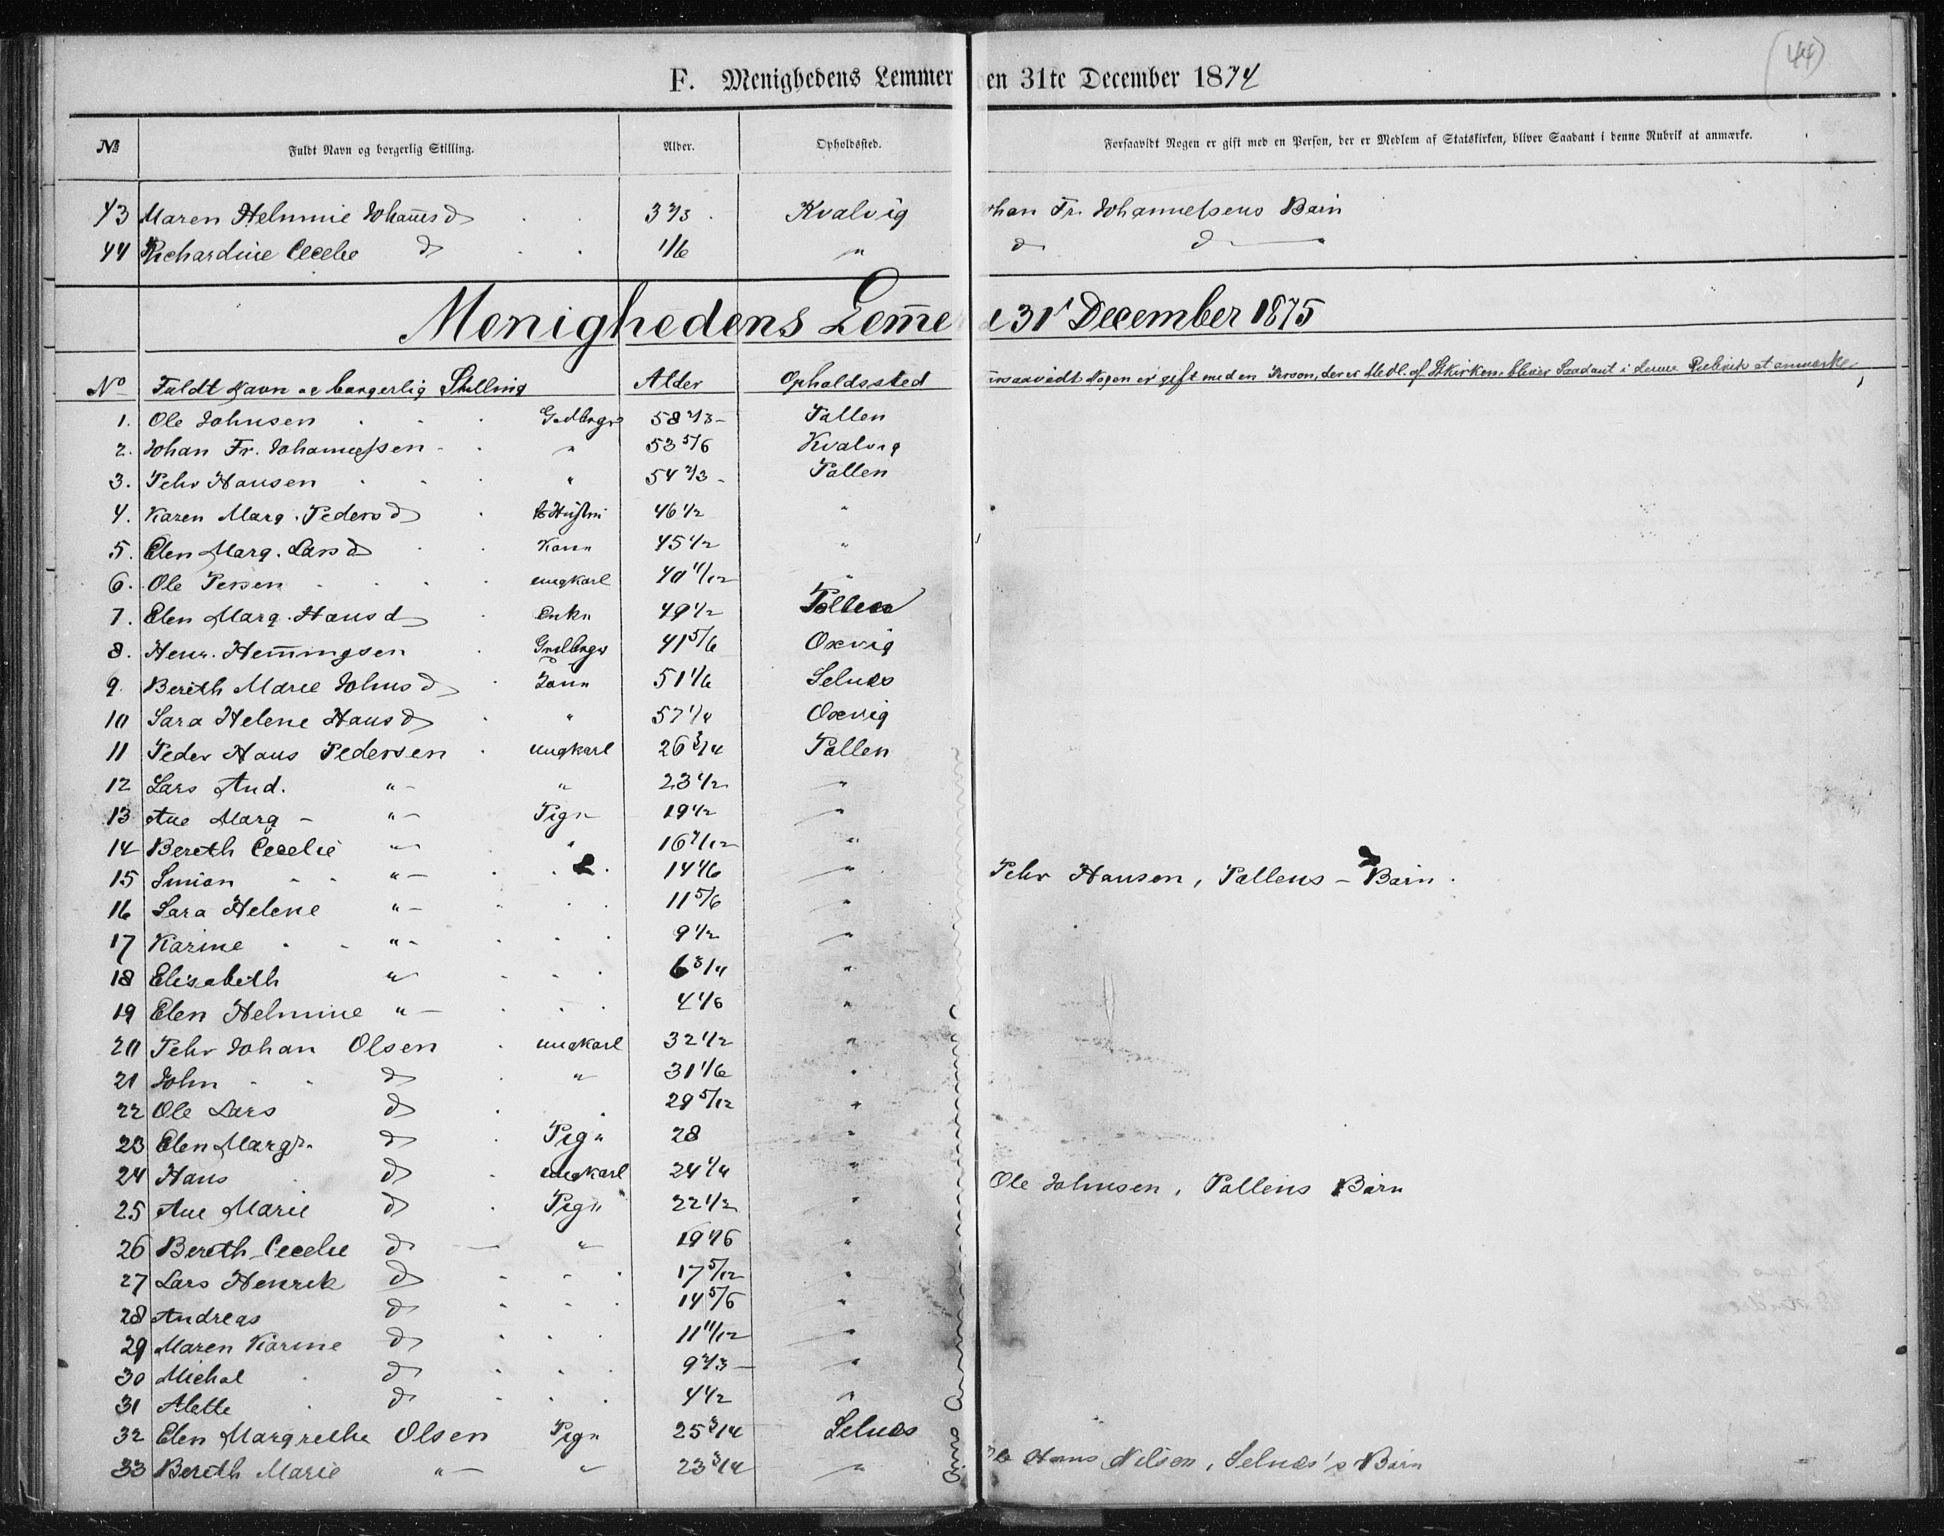 (44)
F. Menighedens Lemmer den 31te December 1874
№ Fuldt Navn og borgerlig Stilling. Alder. Opholdssted. Forsaavidt Nogen er gift med en Person, der er Medlem af Statskirken, bliver Saadant i denne Rubrik at anmærke.
43 Maren Helmine Johansd 3 2/3 Kvalvig Johan Fr. Johannessens Barn
44 Richardine Cecelie d 1/6 " d d
Menighedens Lem̅er 31 December 1875
No Fuldt Navn og borgerlig Stilling Alder Opholdssted Forsaavidt Nogen er gift med en Person, der er Medl. af Stkirken, bliver Saadant i denne Rubrik at anmærke
1. Ole Johnsen Grdbrgr 58 2/3 Pollen
2. Johan Fr. Johannessen " 53 5/6 Kvalvig
3. Pehr Hansen " 54 2/3 Pollen
4. Karen Marg. Pedersd Hustru 46 1/2 "
5. Elen Marg. Larsd Kone 45 1/2 "
6. Ole Persen ungkarl 40 11/12 "
7. Elen Marg. Hansd Enke 49 1/2 Pollen
8. Henr. Hem̅ingsen Grdbrgr 41 5/6 Oxvig
9. Bereth Marie Johnsd Kone 51 1/6 Selnes
10 Sara Helene Hansd " 57 1/4 Oxvig
11 Peder Hans Pedersen ungkarl 26 3/4 Pollen
12 Lars And. " " 23 1/2 "
13 Ane Marg " Pige 19 1/2 "
14 Bereth Cecelie " " 16 7/12 "
15 Simon " 14 1/6 " Pehr Hansen, Pollens - Børn.
16 Sara Helene " 11 5/6 "
17 Karine " 9 1/2 "
18 Elisabeth " 6 3/4 "
19 Elen Helmine " 4 1/6 "
20 Pehr Johan Olsen ungkarl 32 1/2 "
21 John d " 31 1/6 "
22 Ole Lars d 29 5/12 "
23 Elen Margr. d Pige 28 "
24 Hans d ungkarl 24 1/4 " Ole Johnsen, Pollens Børn
25 Ane Marie d Pige 22 1/2 "
26 Bereth Cecelie d " 19 1/6 "
27 Lars Henrik d 17 5/12 "
28 Andreas d 14 5/6 "
29 Maren Karine d 11 11/12 "
30 Michal d 9 2/3 "
31 Alette d 4 1/2 "
32 Elen Margrethe Olsen Pige 25 3/4 Selnes
33 Bereth Marie " " 23 3/4 " Ole Hans Nilsen, Selnes's Børn